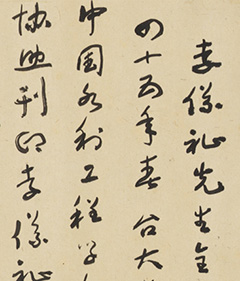 李儀祉先生全
四十五年春台大
中国水利工程学
協 刊印李儀祉